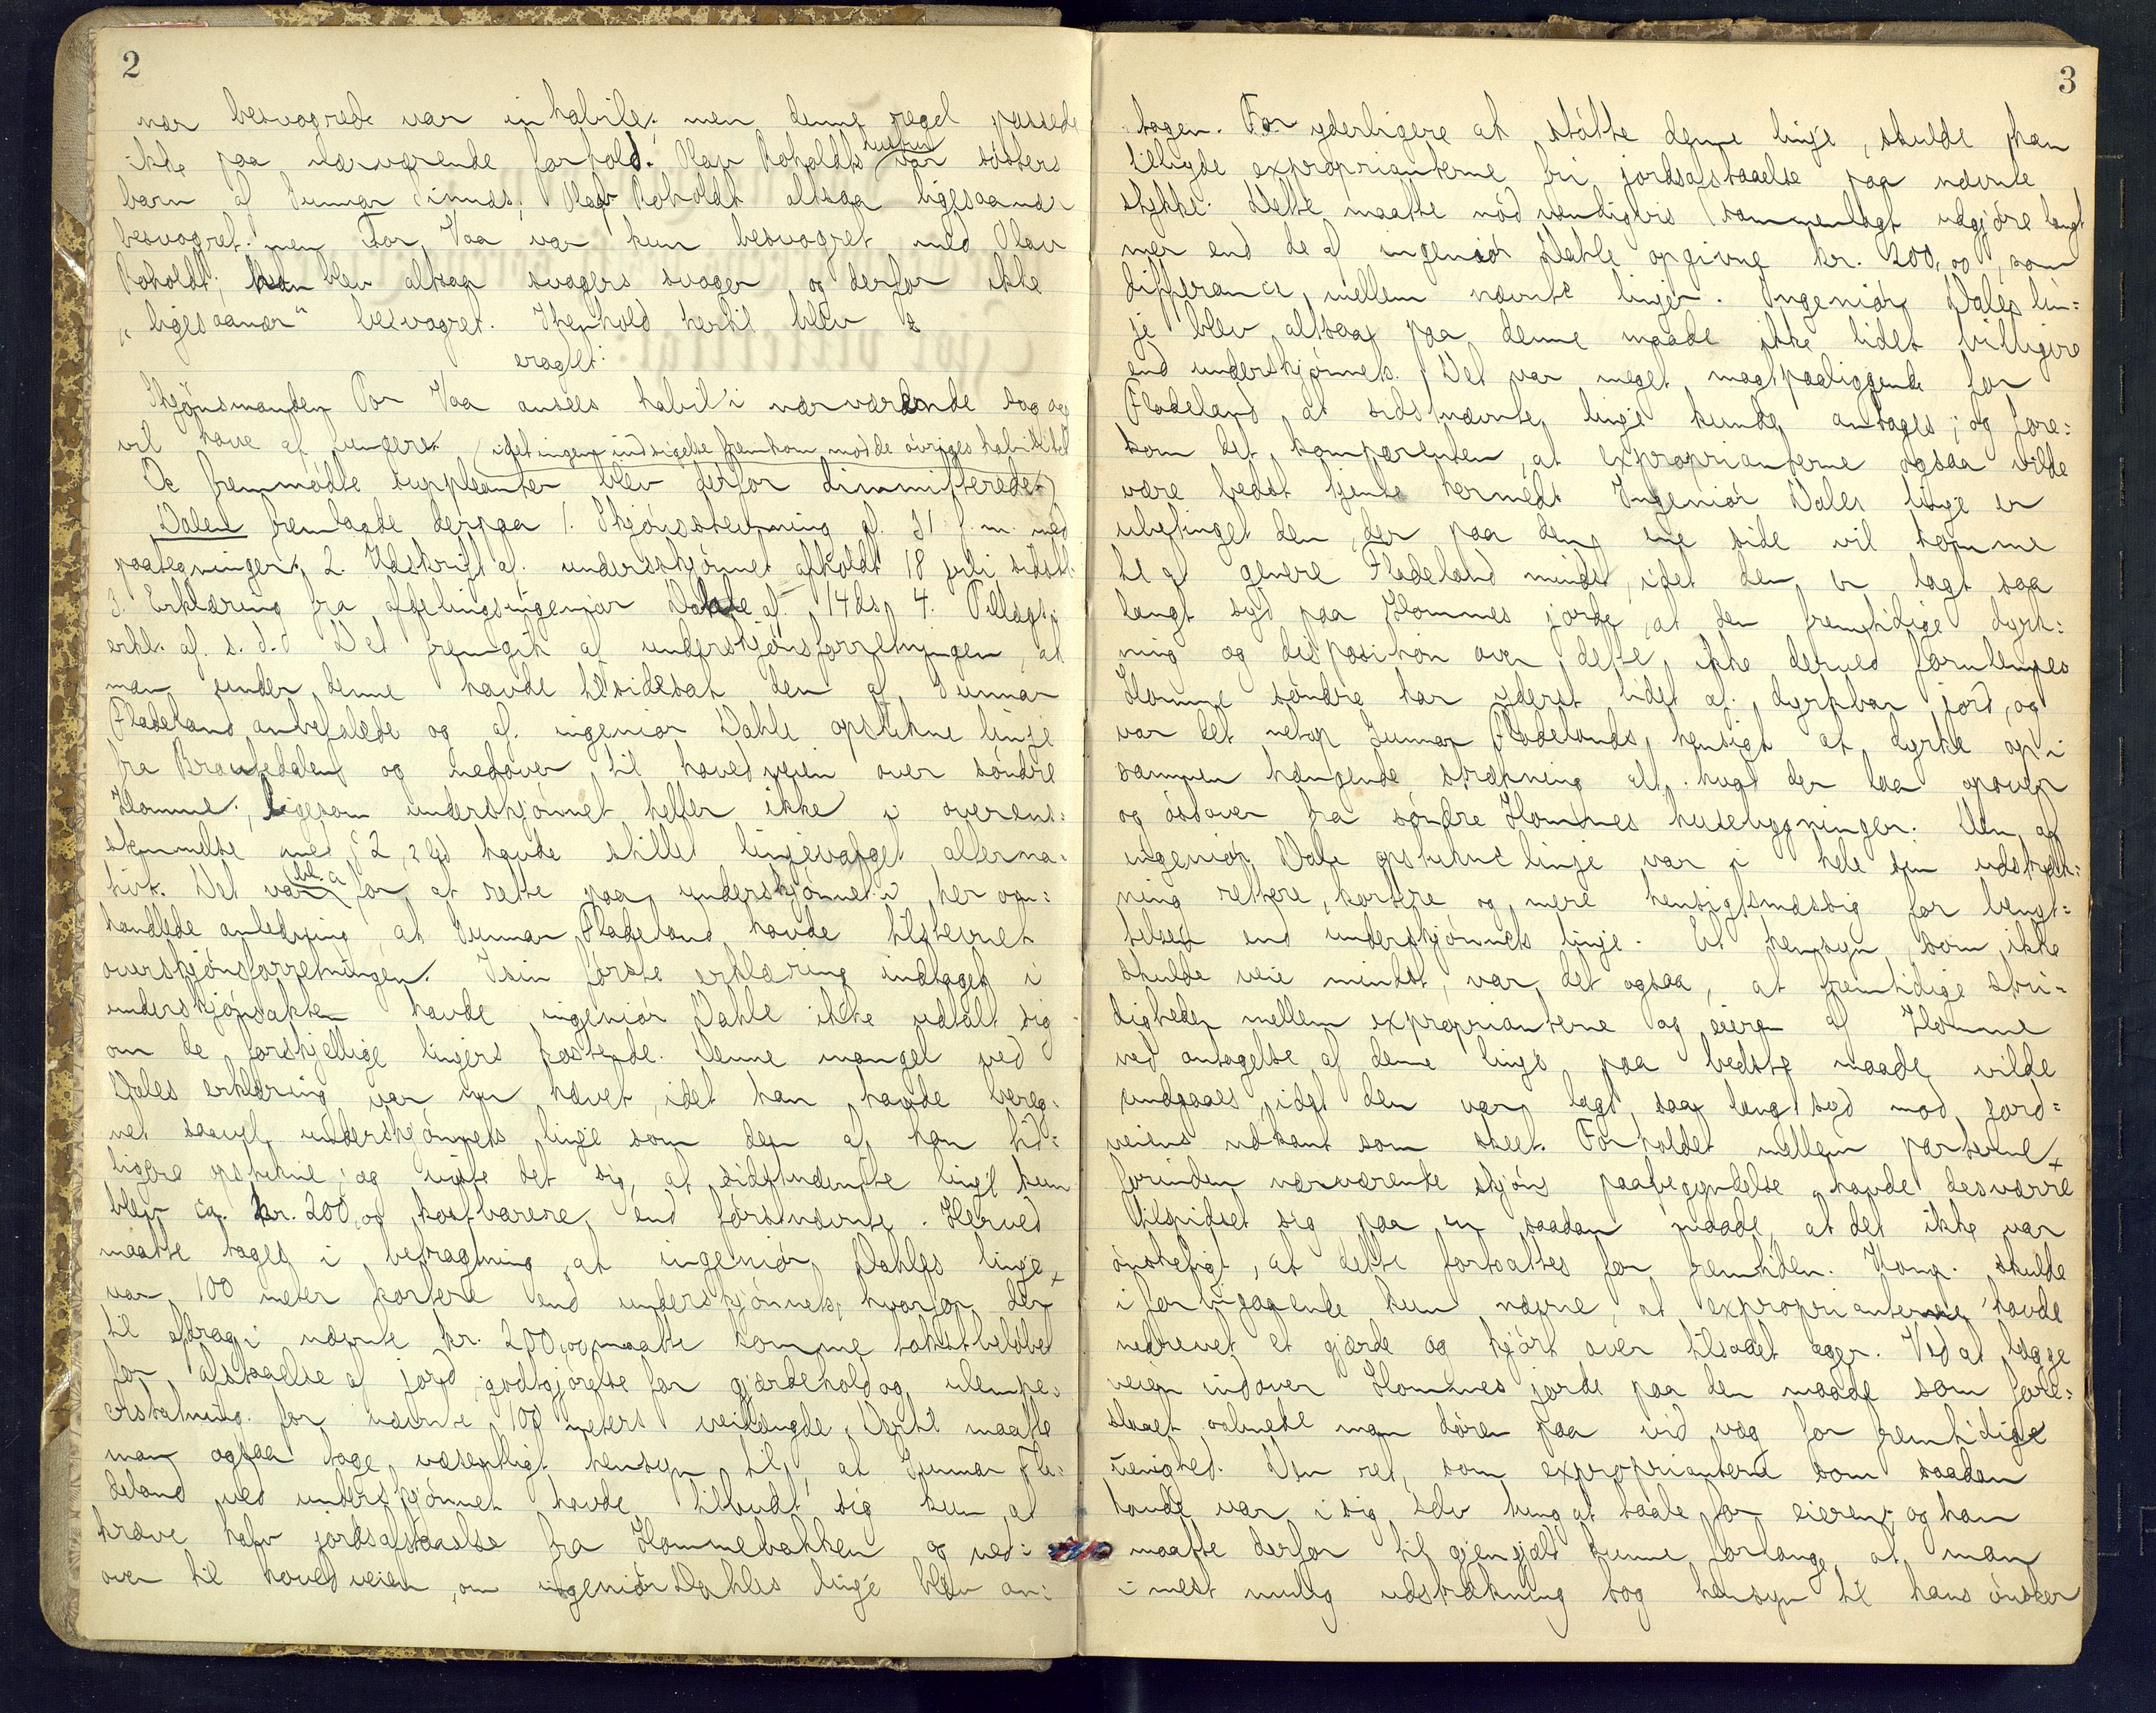 2
nær besvogrede var inhabile; men denne regel passede
ikke paa nærværende forhold. Olav Roholdts hustru var søsters
barn af Gunnar Sinnes; Olav Roholdt altsaa ligesaanær
besvogret; men Tor Vaa var kun besvogret med Olav
Roholdt; han blev altsaa svogers svoger og derfor ikke
"ligesaanær" besvogret. I henhold hertil blev
eragtet:
Skjønsmanden Tor Vaa ansees habil i nærværende sag og
vil have at fungere (idet ingen indsigelse fremkom mod de øvriges habilitet
De fremmødte suppleanter blev derfor dimmitterede)
Dalen fremlagde derpaa 1. Skjønsstevning af 31 f.m. med
paategninger, 2. Udskrift af underskjønnet afholdt 18 juli sidstl.
3. Erklæring fra afdelingsingeniør Dahle af 14 ds, 4. Tillægs-
erkl. af s.d. Det fremgik af underskjønsforretningen, at
man under denne havde tilsidesat den af Gunnar
Fladeland anbefalede og af ingeniør Dahle opstukne linje
fra Braukedalen og nedover til hovedveien over søndre
Homme, ligesom underskjønnet heller ikke i overens-
stemmelse med § 2, 2 led havde stillet linjevalget alterna-
tivt. Det var bl. a. for at rette paa underskjønnet i her om-
handlede anledning, at Gunnar Fladeland havde tilstevnet
overskjønsforretningen. I sin første erklæring indtaget i
underskjønsakten havde ingeniør Dahle ikke udtalt sig
om de forskjellige linjers kostende. Denne mangel ved
Dales erklæring var nu hævet, idet han havde bereg-
net saavel underskjønnets linje som den af han tid-
ligere opstukne; og viste det sig, at sidstnævnte linje kun
blev ca. kr. 200,00 kostbarere end førstnævnte. Herved
maatte tages i betragtning at ingeniør Dahles linje
var 100 meter kortere end underskjønnets, hvorfor der
til afdrag i nævnte kr. 200,00 maatte komme takstbeløbet
for afstaaelse af jord, godtgjørelse for gjærdehold og ulempe-
erstatning for nævnte 100 meters veilængde. Dertil maatte
man ogsaa tage væsentligt hensyn til, at Gunnar Fla-
deland ved underskjønnet havde tilbudt sig kun at
kræve halv jordsafstaaelse fra Hommebakken og ned-
over til hovedveien, om ingeniør Dahles linje blev an-
3
tagen. For yderligere at støtte denne linje, skulde han
tilbyde exproprianterne fri jordsafstaaelse paa nævnte
stykke. Dette maatte nødvendigvis sammenlagt udgjøre langt
mer end de af ingeniør Dahle opgivne kr. 200,00, som
differance mellem nævnte linjer. Ingeniør Dales lin-
je blev altsaa paa denne maade ikke lidet billigere
end underskjønnets. Det var meget magtpaaliggende for
Fladeland at sidstnævnte linje kunde antages; og fore-
kom det komparenten, at exproprianterne ogsaa vilde
være bedst tjente hermed. Ingeniør Dales linje er
ubetinget den, der paa den ene side vil komme
til at genere Fladeland mindst, idet den er lagt saa
langt syd paa Hommes jorde, at den fremtidige dyrk-
ning og disposition over dette, ikke derved forulempes
Homme søndre har yderst lidet af dyrkbar jord, og
var det netop Gunnar Fladelands hensigt at dyrke op i
sammenhængende strækning alt hvad der laa opover
og østover fra søndre Hommes husebygninger. Den af
ingeniør Dale opstukne linje var i hele sin udstræk-
ning rettere, kortere og mere hensigtsmæssig for benyt-
telsen end underskjønnets linje. Et hensyn, som ikke
skulde veie mindst, var det ogsaa, at fremtidige stri-
digheder mellem exproprianterne og eieren af Homme
ved antagelse af denne linje paa bedste maade vilde
undgaaes, idet den var lagt saa langt syd mod jord-
veiens udkant som skeet. Forholdet mellem parterne
forinden nærværende skjøns paabegyndelse havde desværre
tilspidset sig paa en saadan maade, at det ikke var
ønskeligt, at dette fortsattes for fremtiden. Komp. skulde
i forbigaaende kun nævne, at exproprianterne havde
nedrevet et gjærde og kjørt over tilsaaet ager. Ved at lægge
veien indover Hommes jorde paa den maade som fore-
slaaet aabnede man døren paa vid væg for fremtidige
uenighed. Den ret, som exproprianterne som saadan
havde var i sig selv tung at taale for eieren; og han
maatte derfor til gjengjæld kunne forlange, at man
i mest mulig udstrækning tog hensyn til hans ønsker